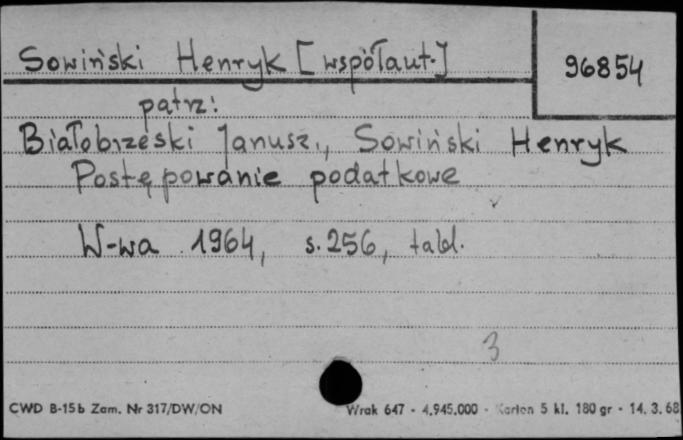 Sowiński Henryk [współaut.]
96854
patrz:
Białobrzeski Janusz, Sowiński Henryk
Postępowanie podatkowe
W-wa 1964, s. 256, tabl.
3
CWD B-15b Zam. Nr 317/DW/ON
Wrak 647 - 4.945.000 - Karton 5 kl. 180 gr - 14. 3. 68